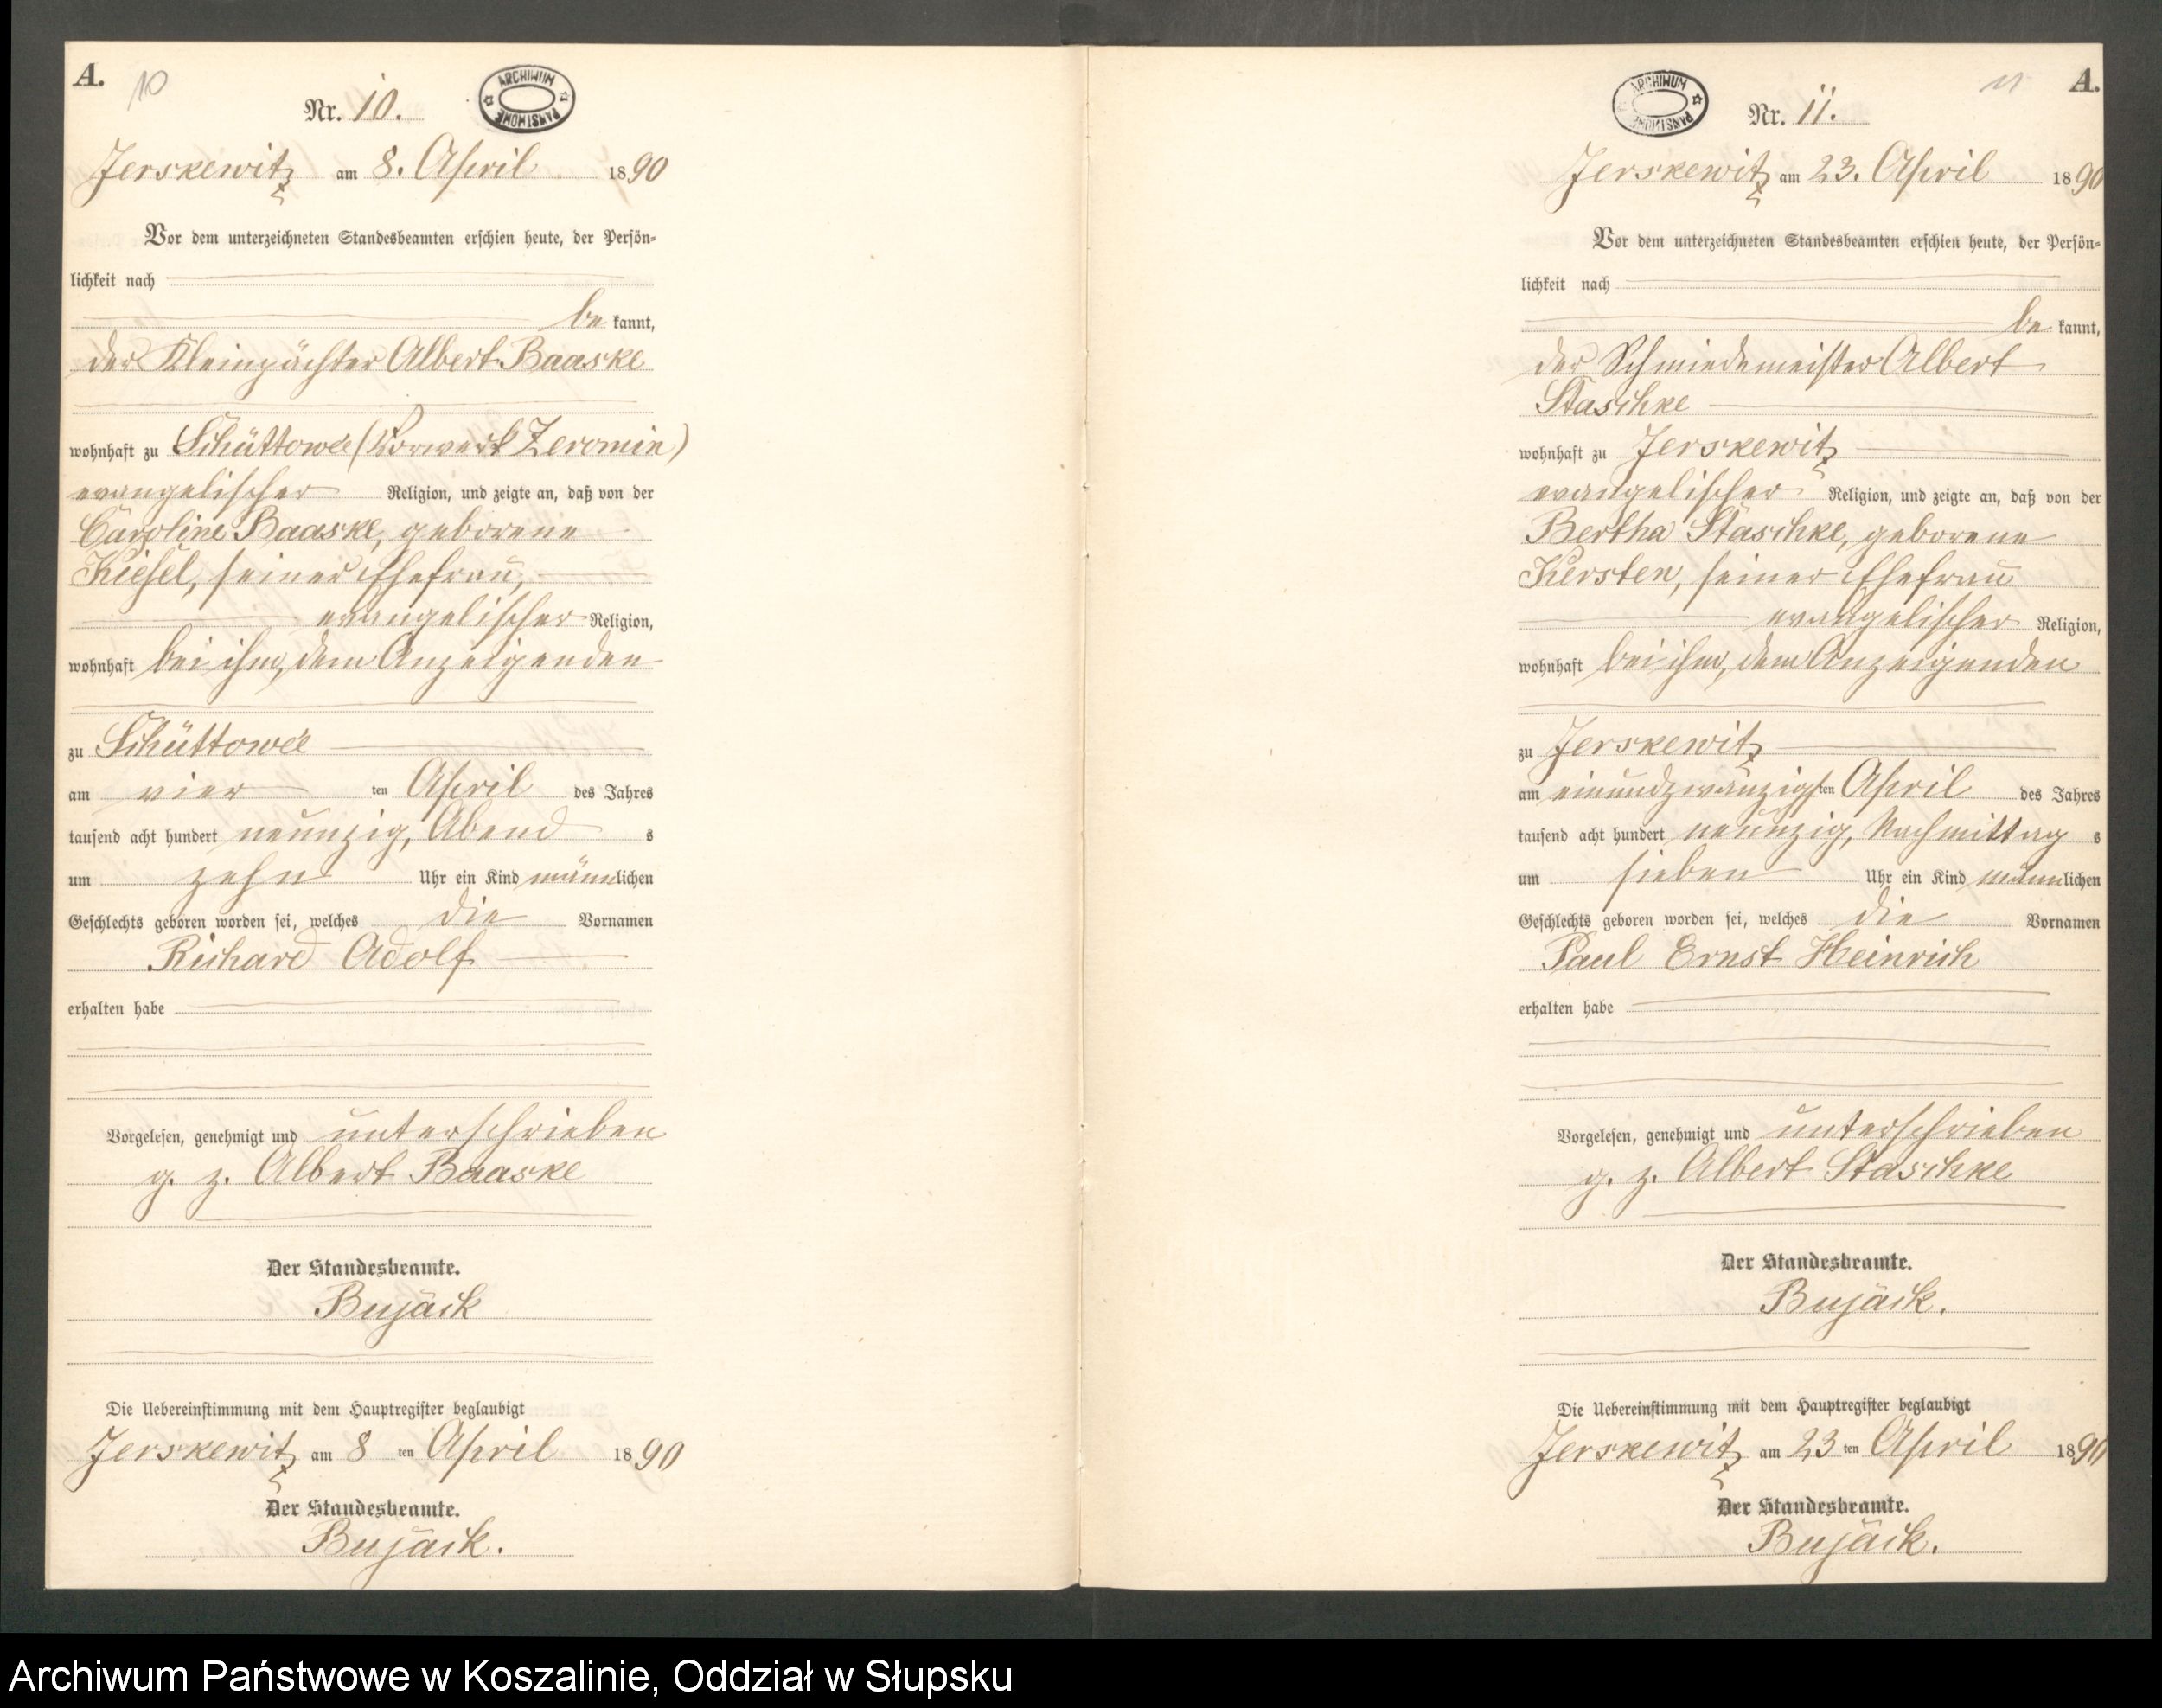 A.
10
Nr. 10.
ARCHIWUM PAŃSTWOWE
Jerskewitz am 8. April 1890
Vor dem unterzeichneten Standesbeamten erschien heute, der Persön-
lichkeit nach
be kannt,
der Kleinpächter Albert Baaske
wohnhaft zu Schüttower (Vorwerk Zeromin)
evangelischer Religion, und zeigte an, daß von der
Caroline Baaske, geborene
Kiesel, seiner Ehefrau,
evangelischer Religion,
wohnhaft bei ihm, dem Anzeigenden
zu Schüttower
am vier ten April des Jahres
tausend acht hundert neunzig, Abend s
um zehn Uhr ein Kind männlichen
Geschlechts geboren worden sei, welches die Vornamen
Richard Adolf
erhalten habe
Vorgelesen, genehmigt und unterschrieben
g. z. Albert Baaske
Der Standesbeamte.
Bujäck
Die Uebereinstimmung mit dem Hauptregister beglaubigt
Jerskewitz am 8 ten April 1890
Der Standesbeamte.
Bujäck.
11
A.
ARCHIWUM PAŃSTWOWE
Nr. 11.
Jerskewitz am 23. April 1890
Vor dem unterzeichneten Standesbeamten erschien heute, der Persön-
lichkeit nach
be kannt,
der Schmiedemeister Albert
Staschke
wohnhaft zu Jerskewitz
evangelischer Religion, und zeigte an, daß von der
Bertha Staschke, geborene
Kersten, seiner Ehefrau
evangelischer Religion,
wohnhaft bei ihm, dem Anzeigenden
zu Jerskewitz
am einundzwanzigsten April des Jahres
tausend acht hundert neunzig, Nachmittag s
um sieben Uhr ein Kind männlichen
Geschlechts geboren worden sei, welches die Vornamen
Paul Ernst Heinrich
erhalten habe
Vorgelesen, genehmigt und unterschrieben
g. z. Albert Staschke
Der Standesbeamte.
Bujäck.
Die Uebereinstimmung mit dem Hauptregister beglaubigt
Jerskewitz am 23 ten April 1890
Der Standesbeamte.
Bujäck.
Archiwum Państwowe w Koszalinie, Oddział w Słupsku